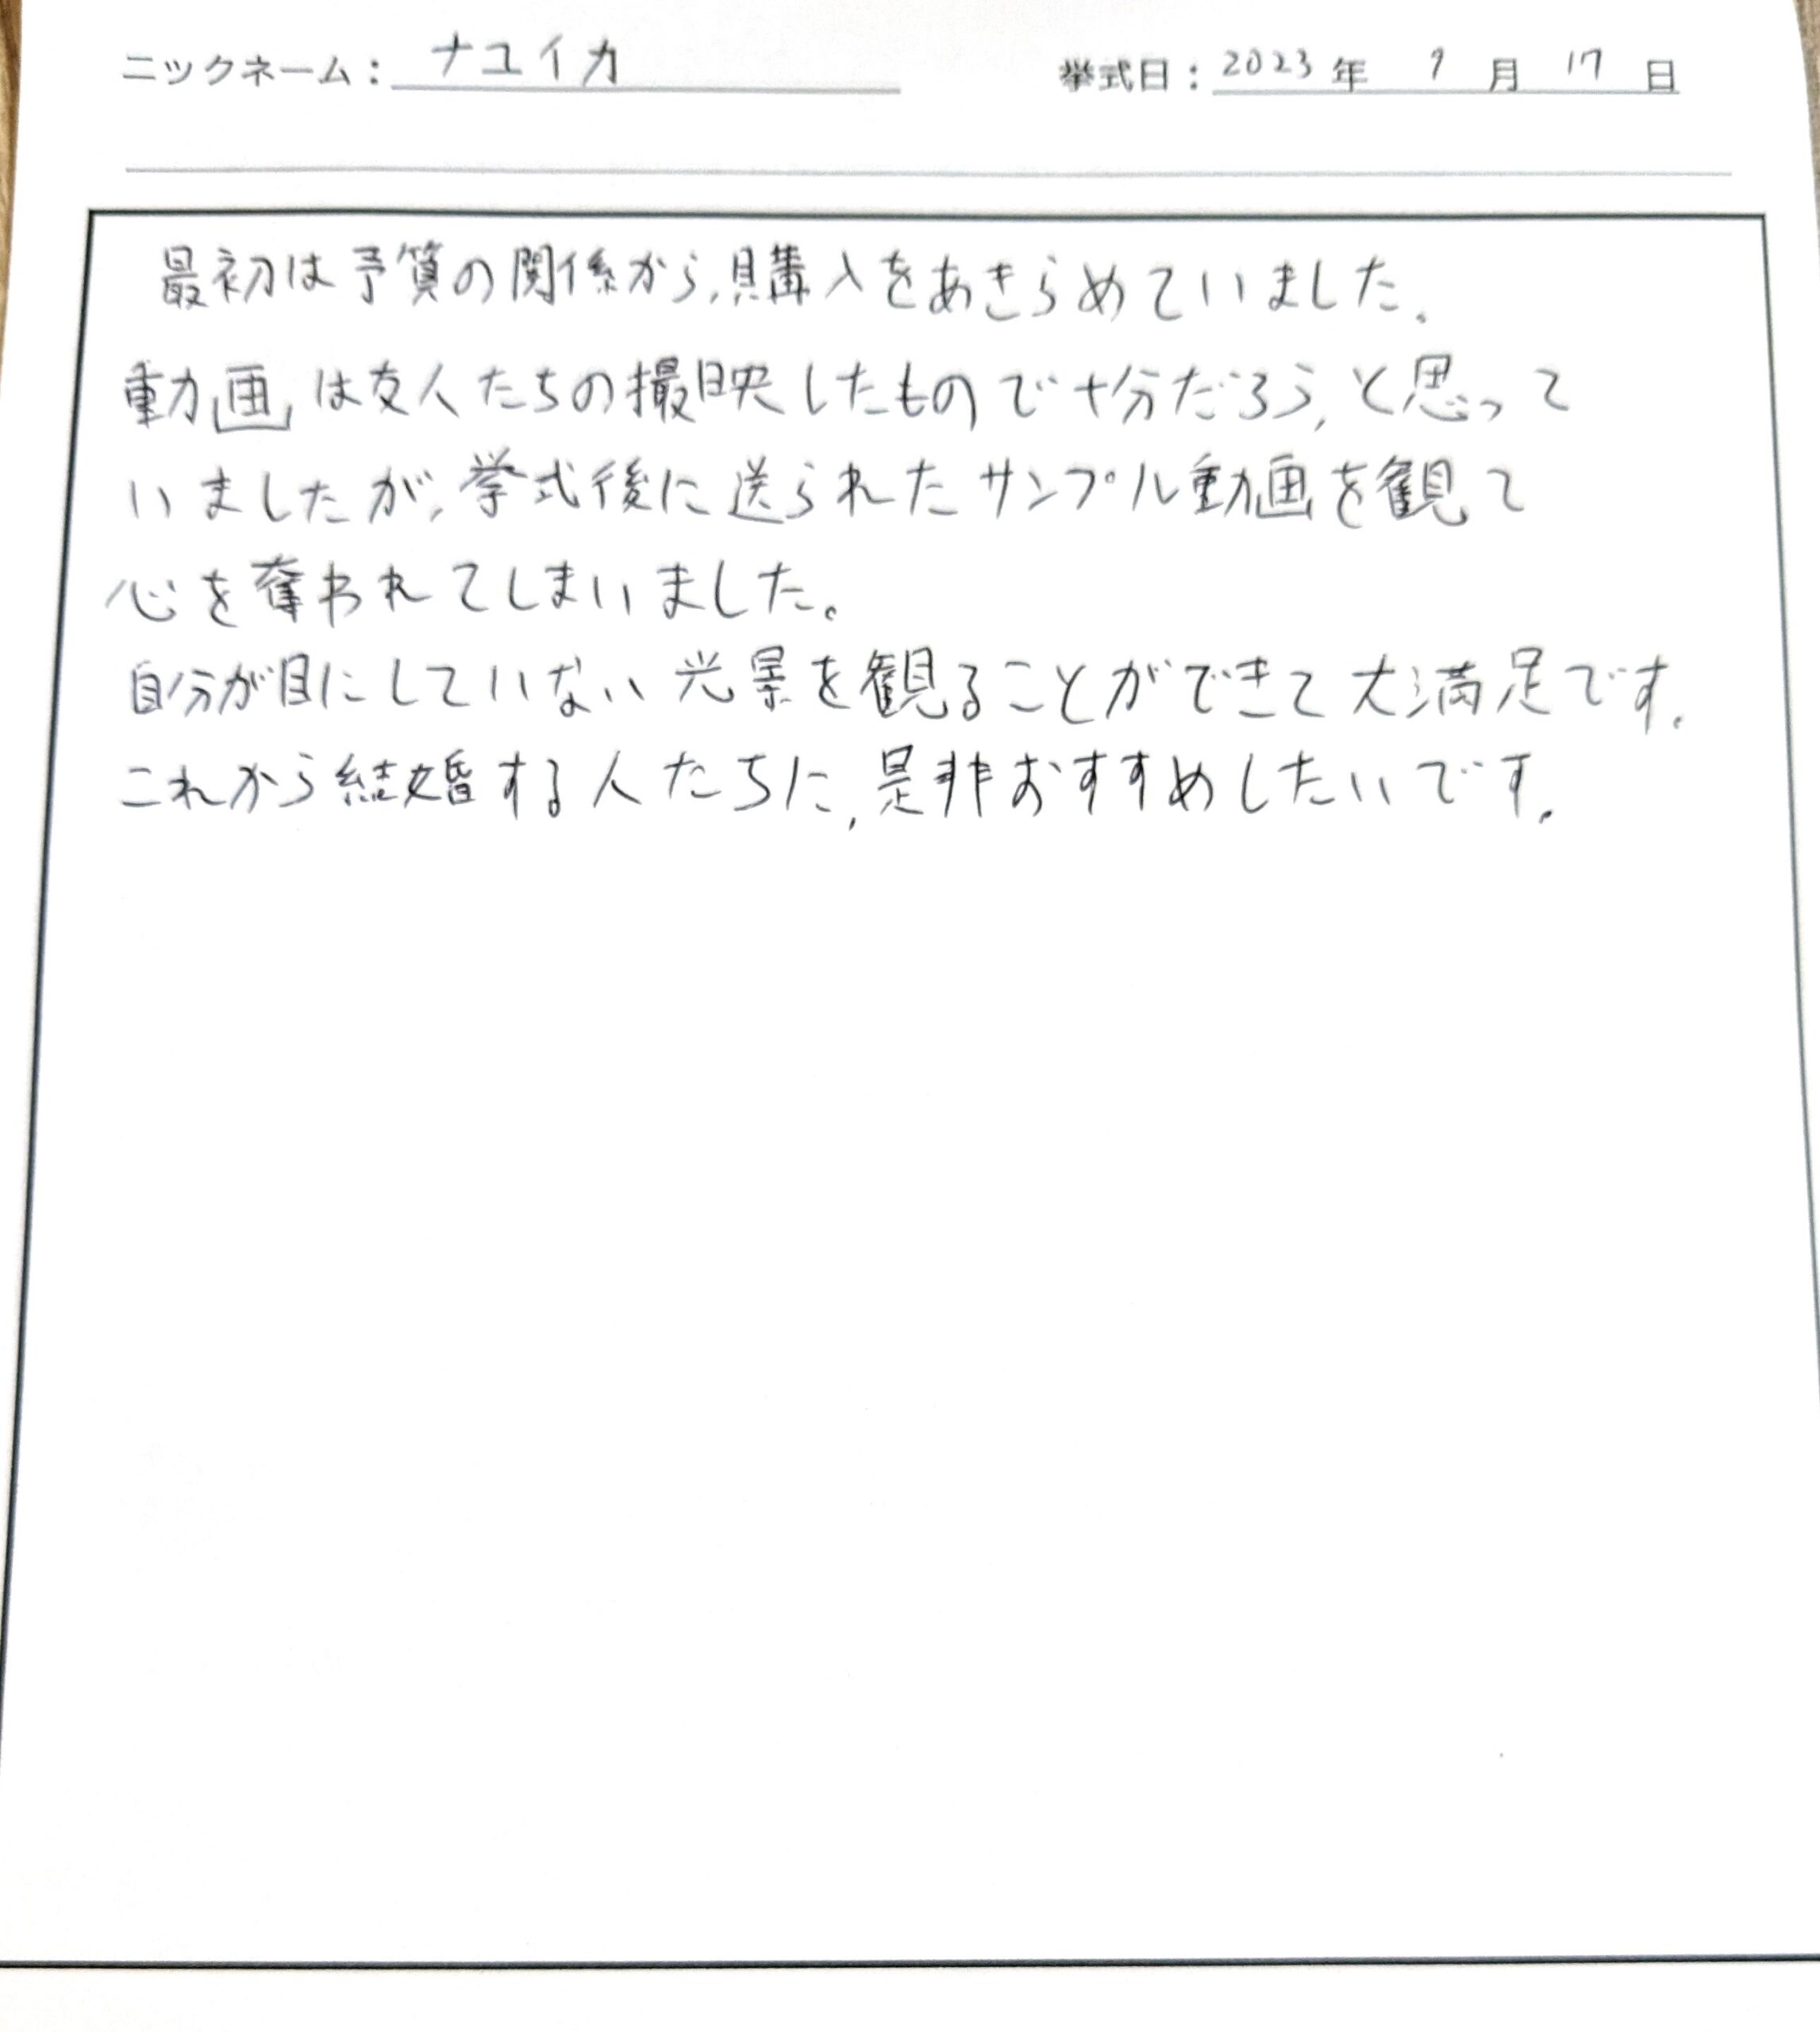 ニックネーム：ナユイカ 挙式日：2023年 9月 17日
最初は予算の関係から、購入をあきらめていました。
動画は友人たちの撮映したもので十分だろう、と思って
いましたが、挙式後に送られたサンプル動画を観て
心を奪われてしまいました。
自分が目にしていない光景を観ることができて大満足です。
これから結婚する人たちに、是非おすすめしたいです。